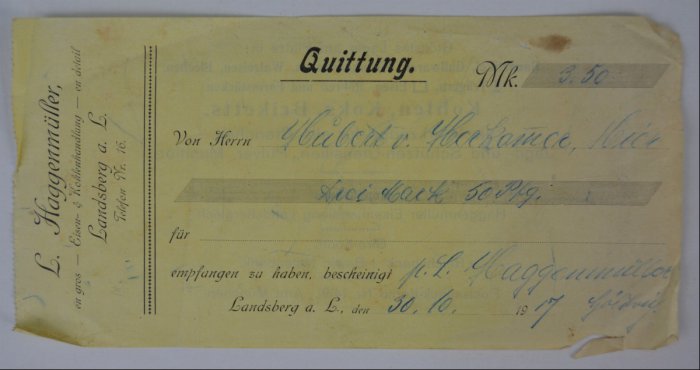 L. Haggenmüller,
en gros — Eisen- & Kohlenhandlung — en detail
Landsberg a. L.
Telefon Nr. 16.
Quittung.
Mk. 3.50
Von Herrn Hubert v. Herkomer, Hier
Drei Mark 50 Pfg.
für
empfangen zu haben, bescheinigt p. L. Haggenmüller
Landsberg a. L., den 30.10. 1917